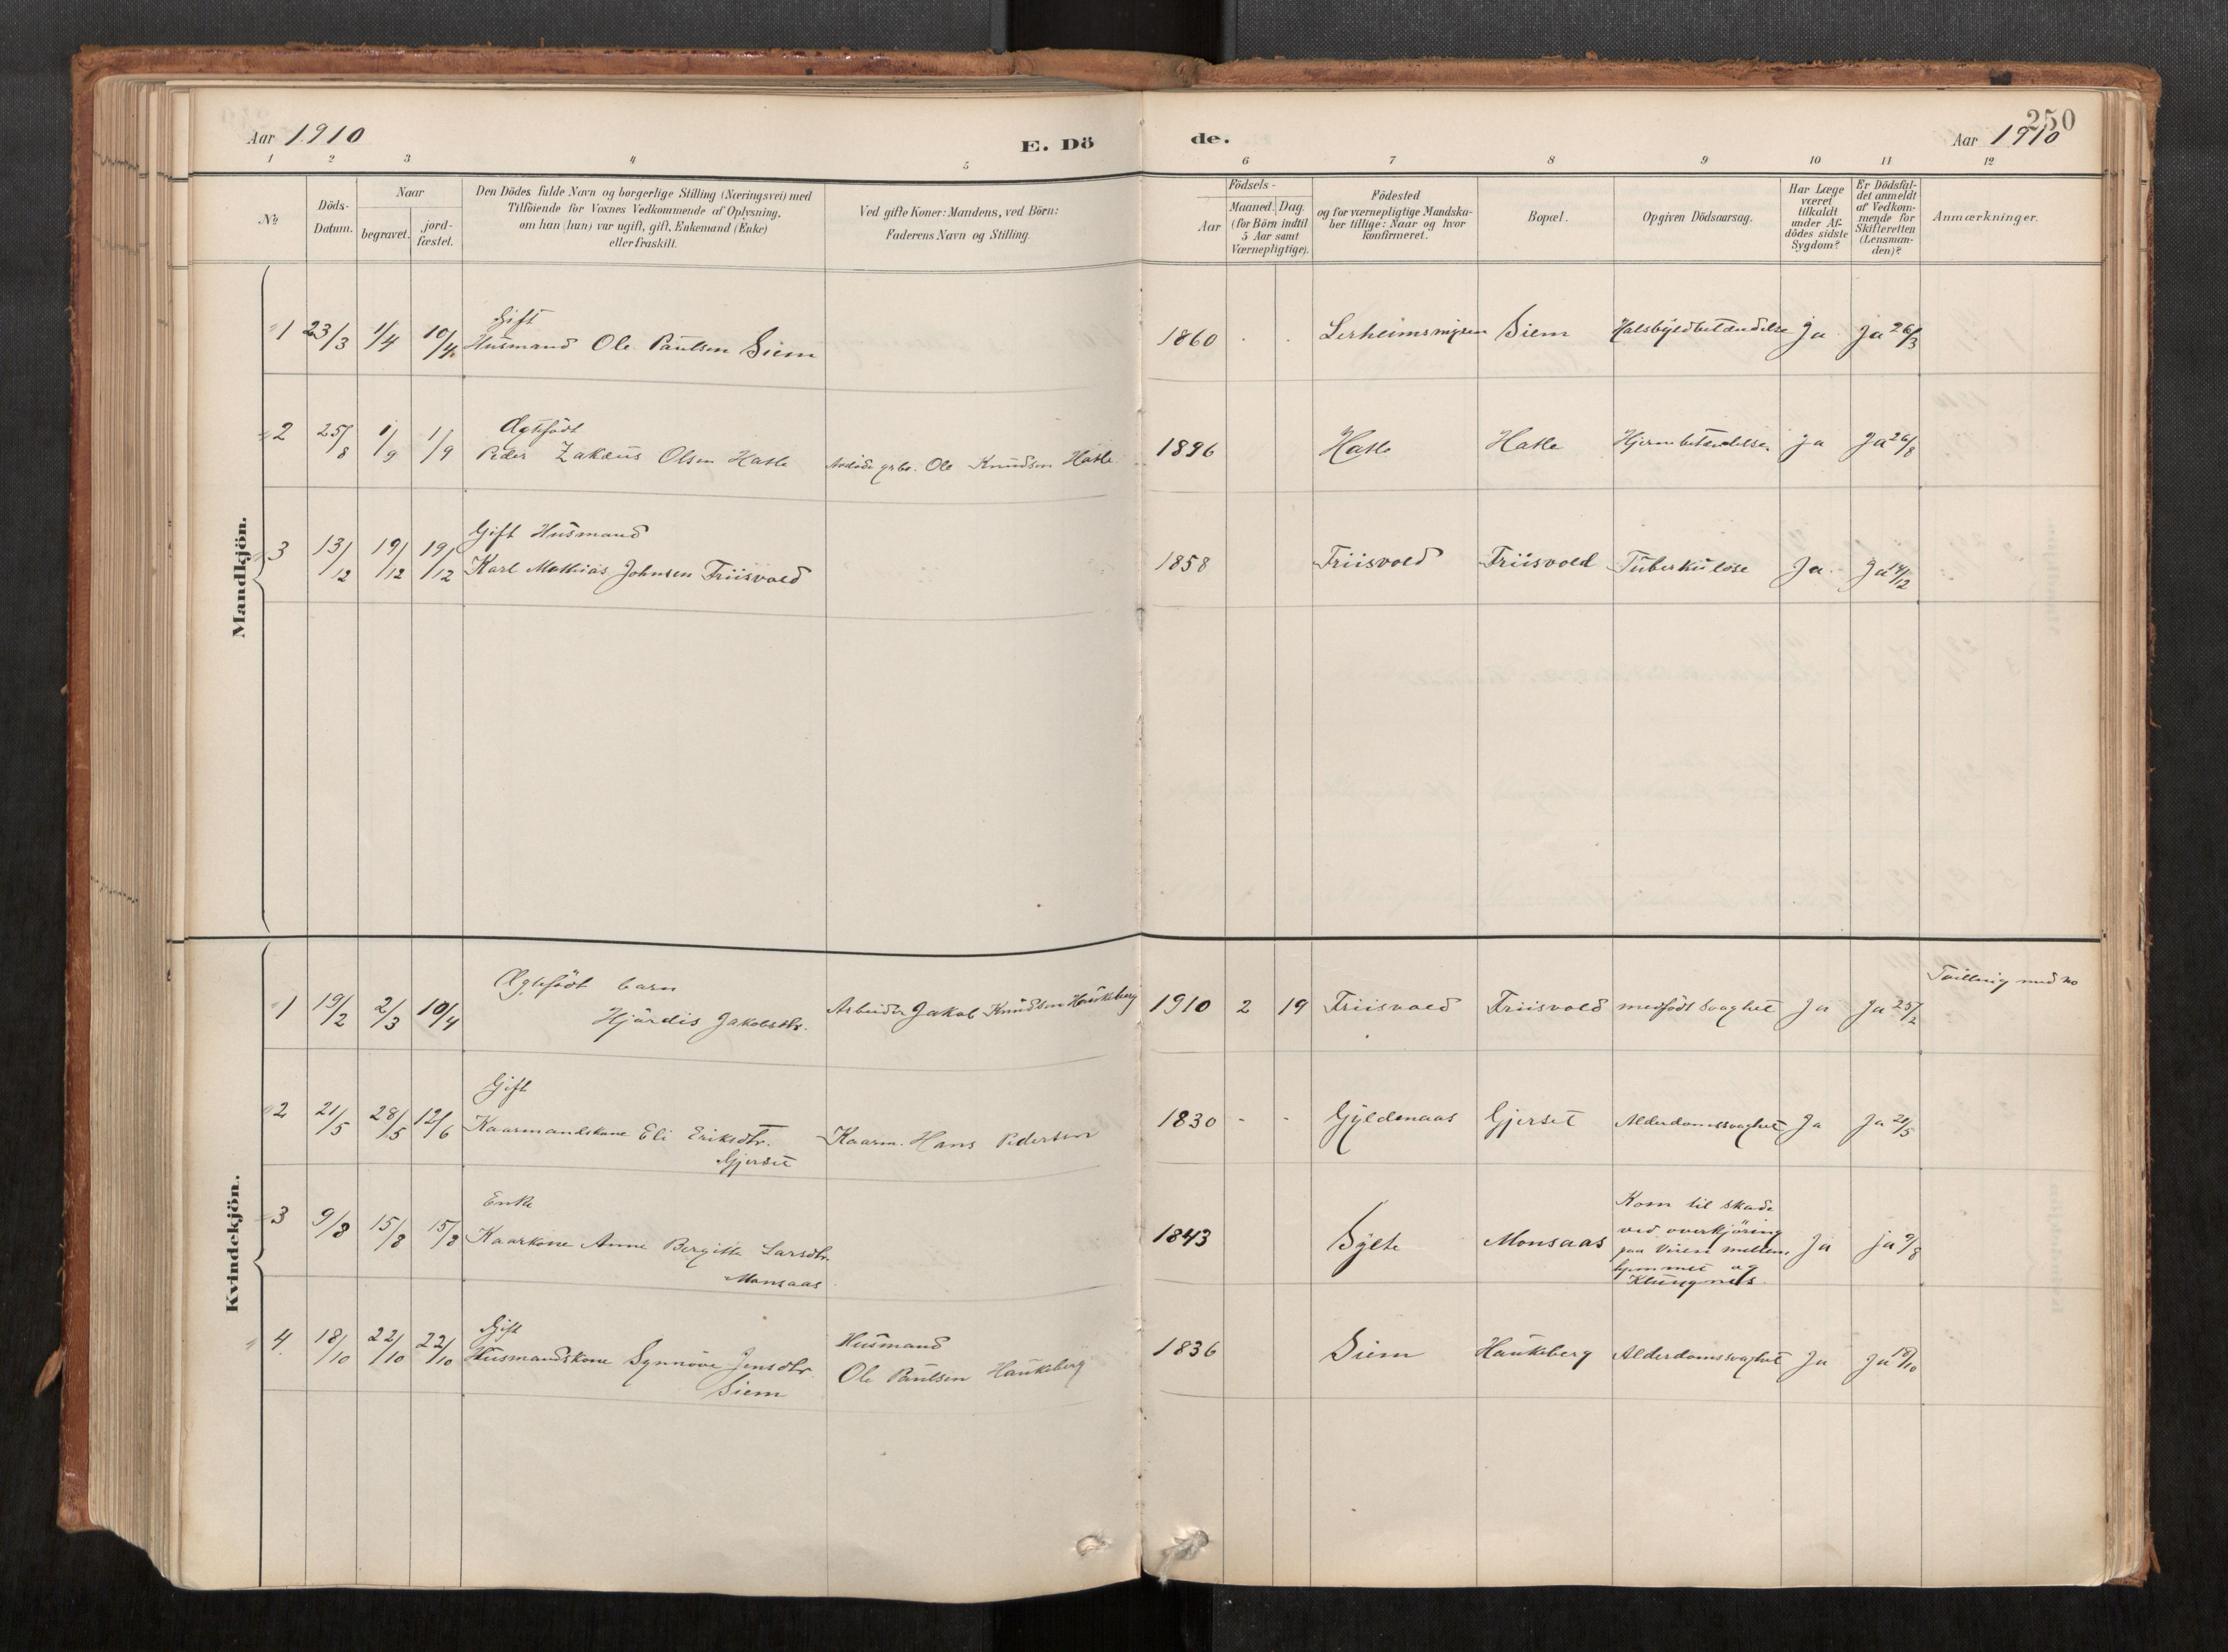 250
Aar 1910
E. Dö
de.
Aar 1910
1 2 3 4 5 6 7 8 9 10 11 12
No
Döds-
Datum.
Naar
begravet.
jord-
fæstet.
Den Dödes fulde Navn og borgerlige Stilling (Næringsvei) med
Tilföiende for Voxnes Vedkommende af Oplysning,
om han (hun) var ugift, gift, Enkemand (Enke)
eller fraskilt.
Ved gifte Koner: Mandens, ved Börn:
Faderens Navn og Stilling.
Födsels-
Aar
Maaned. Dag.
(for Börn indtil
5 Aar samt
Værnepligtige).
Födested
og for værnepligtige Mandska-
ber tillige: Naar og hvor
konfirmeret.
Bopæl.
Opgiven Dödsaarsag.
Har Læge
været
tilkaldt
under Af-
dödes sidste
Sygdom?
Er Dödsfal-
det anmeldt
af Vedkom-
mende for
Skifteretten
(Lensman-
den)?
Anmærkninger.
Mandkjön.
Gift
1 23/3 1/4 10/4 Husmand Ole Paulsen Siem 1860 Lerheimsmyren Siem Halsbyldbetændelse Ja Ja 26/3
Ægtefödt
2 25/8 1/9 1/9 Peder Zakæus Olsen Hatle Avdöde grbr. Ole Knudsen Hatle 1896 Hatle Hatle Hjernebetændelse Ja Ja 26/8
Gift Husmand
3 13/12 19/12 19/12 Karl Mathias Johnsen Friisvold 1858 Friisvold Friisvold Tuberkulose Ja Ja 14/12
Kvindekjön.
Ægtefödt barn Tvilling med no
1 19/2 2/3 10/4 Hjördis Jakobsdtr. Arbeider Jakob Knudsen Haukeberg 1910 2 19 Friisvold Friisvold medfödt svaghet Ja Ja 25/2
Gift
2 21/5 28/5 12/6 Kaarmandskone Eli Eriksdtr. Kaarm. Hans Pedersen 1830 - - Gyldenaas Gjerset Alderdomssvaghet Ja Ja 21/5
Gjerset
Enke
3 9/8 15/8 15/8 Kaarkone Anne Bergitte Larsdtr. 1843 Sylte Monsaas Kom til skade
ved overkjöring
paa Veien mellem Ja ja 9/8
hjemmet og
Klungnes.
Monsaas
Gift
4 18/10 22/10 22/10 Husmandskone Synnöve Jensdtr. Husmand
Ole Paulsen Haukeberg 1836 Siem Haukeberg Alderdomssvaghet Ja Ja 18/10
Siem